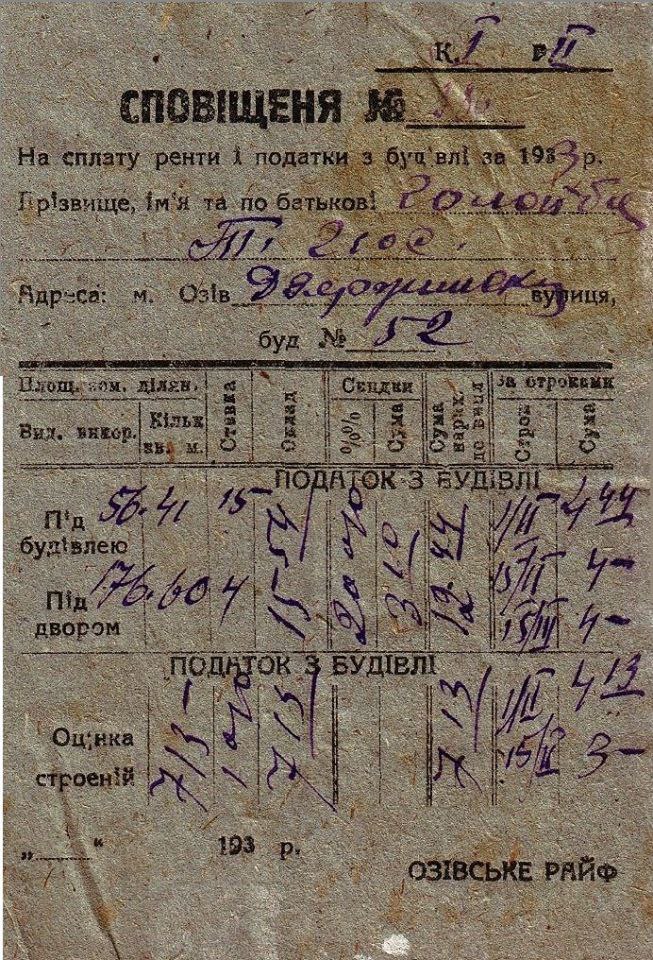 К. I Р II
СПОВІЩЕНЯ №
На сплату ренти і податки з буд'влі за 1933 р.
Прізвище, ім'я та по батькові
Адреса: м. Озів вулиця,
буд № 52
Площ. зом. ділян. Ставка Оклад Скидки Сума нарах. до випл За строками
Вид. викор. Кільк кв. м. %% Сума Строк Сума
ПОДАТОК З БУДІВЛІ
Під будівлею 56.41 15 15 54 20% 3 10 12.44 1/II 4 44
15/II 4-
Під двором 176.60 4 15/III 4-
ПОДАТОК З БУДІВЛІ
Оц;нка строеній 713- 1% 7 13 7 13 1/II 4 13
15/III 3-
„ “ 193 р.
ОЗІВСЬКЕ РАЙФ